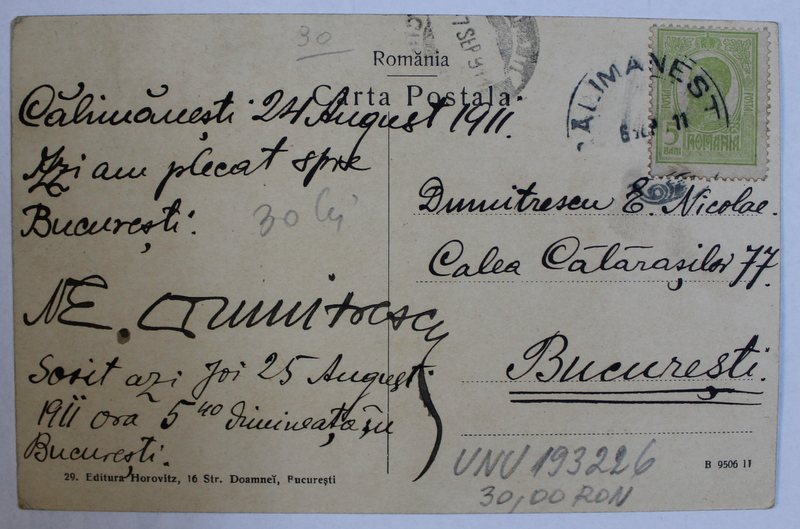 30
7 SEP
România
Carta Postala
ALIMANEST
11
5 BANI
ROMANIA
Călimănești 24 August 1911.
Azi am plecat spre
București.
30 lei
NE. Dumitrescu
Sosit azi Joi 25 August
1911 ora 5 40 dimineața în
București.
Dumitrescu E. Nicolae.
Calea Călărașilor 77.
București.
UNU 193226
30,00 RON
29. Editura Horovitz, 16 Str. Doamneĭ, Pucureşti
B 9506 11